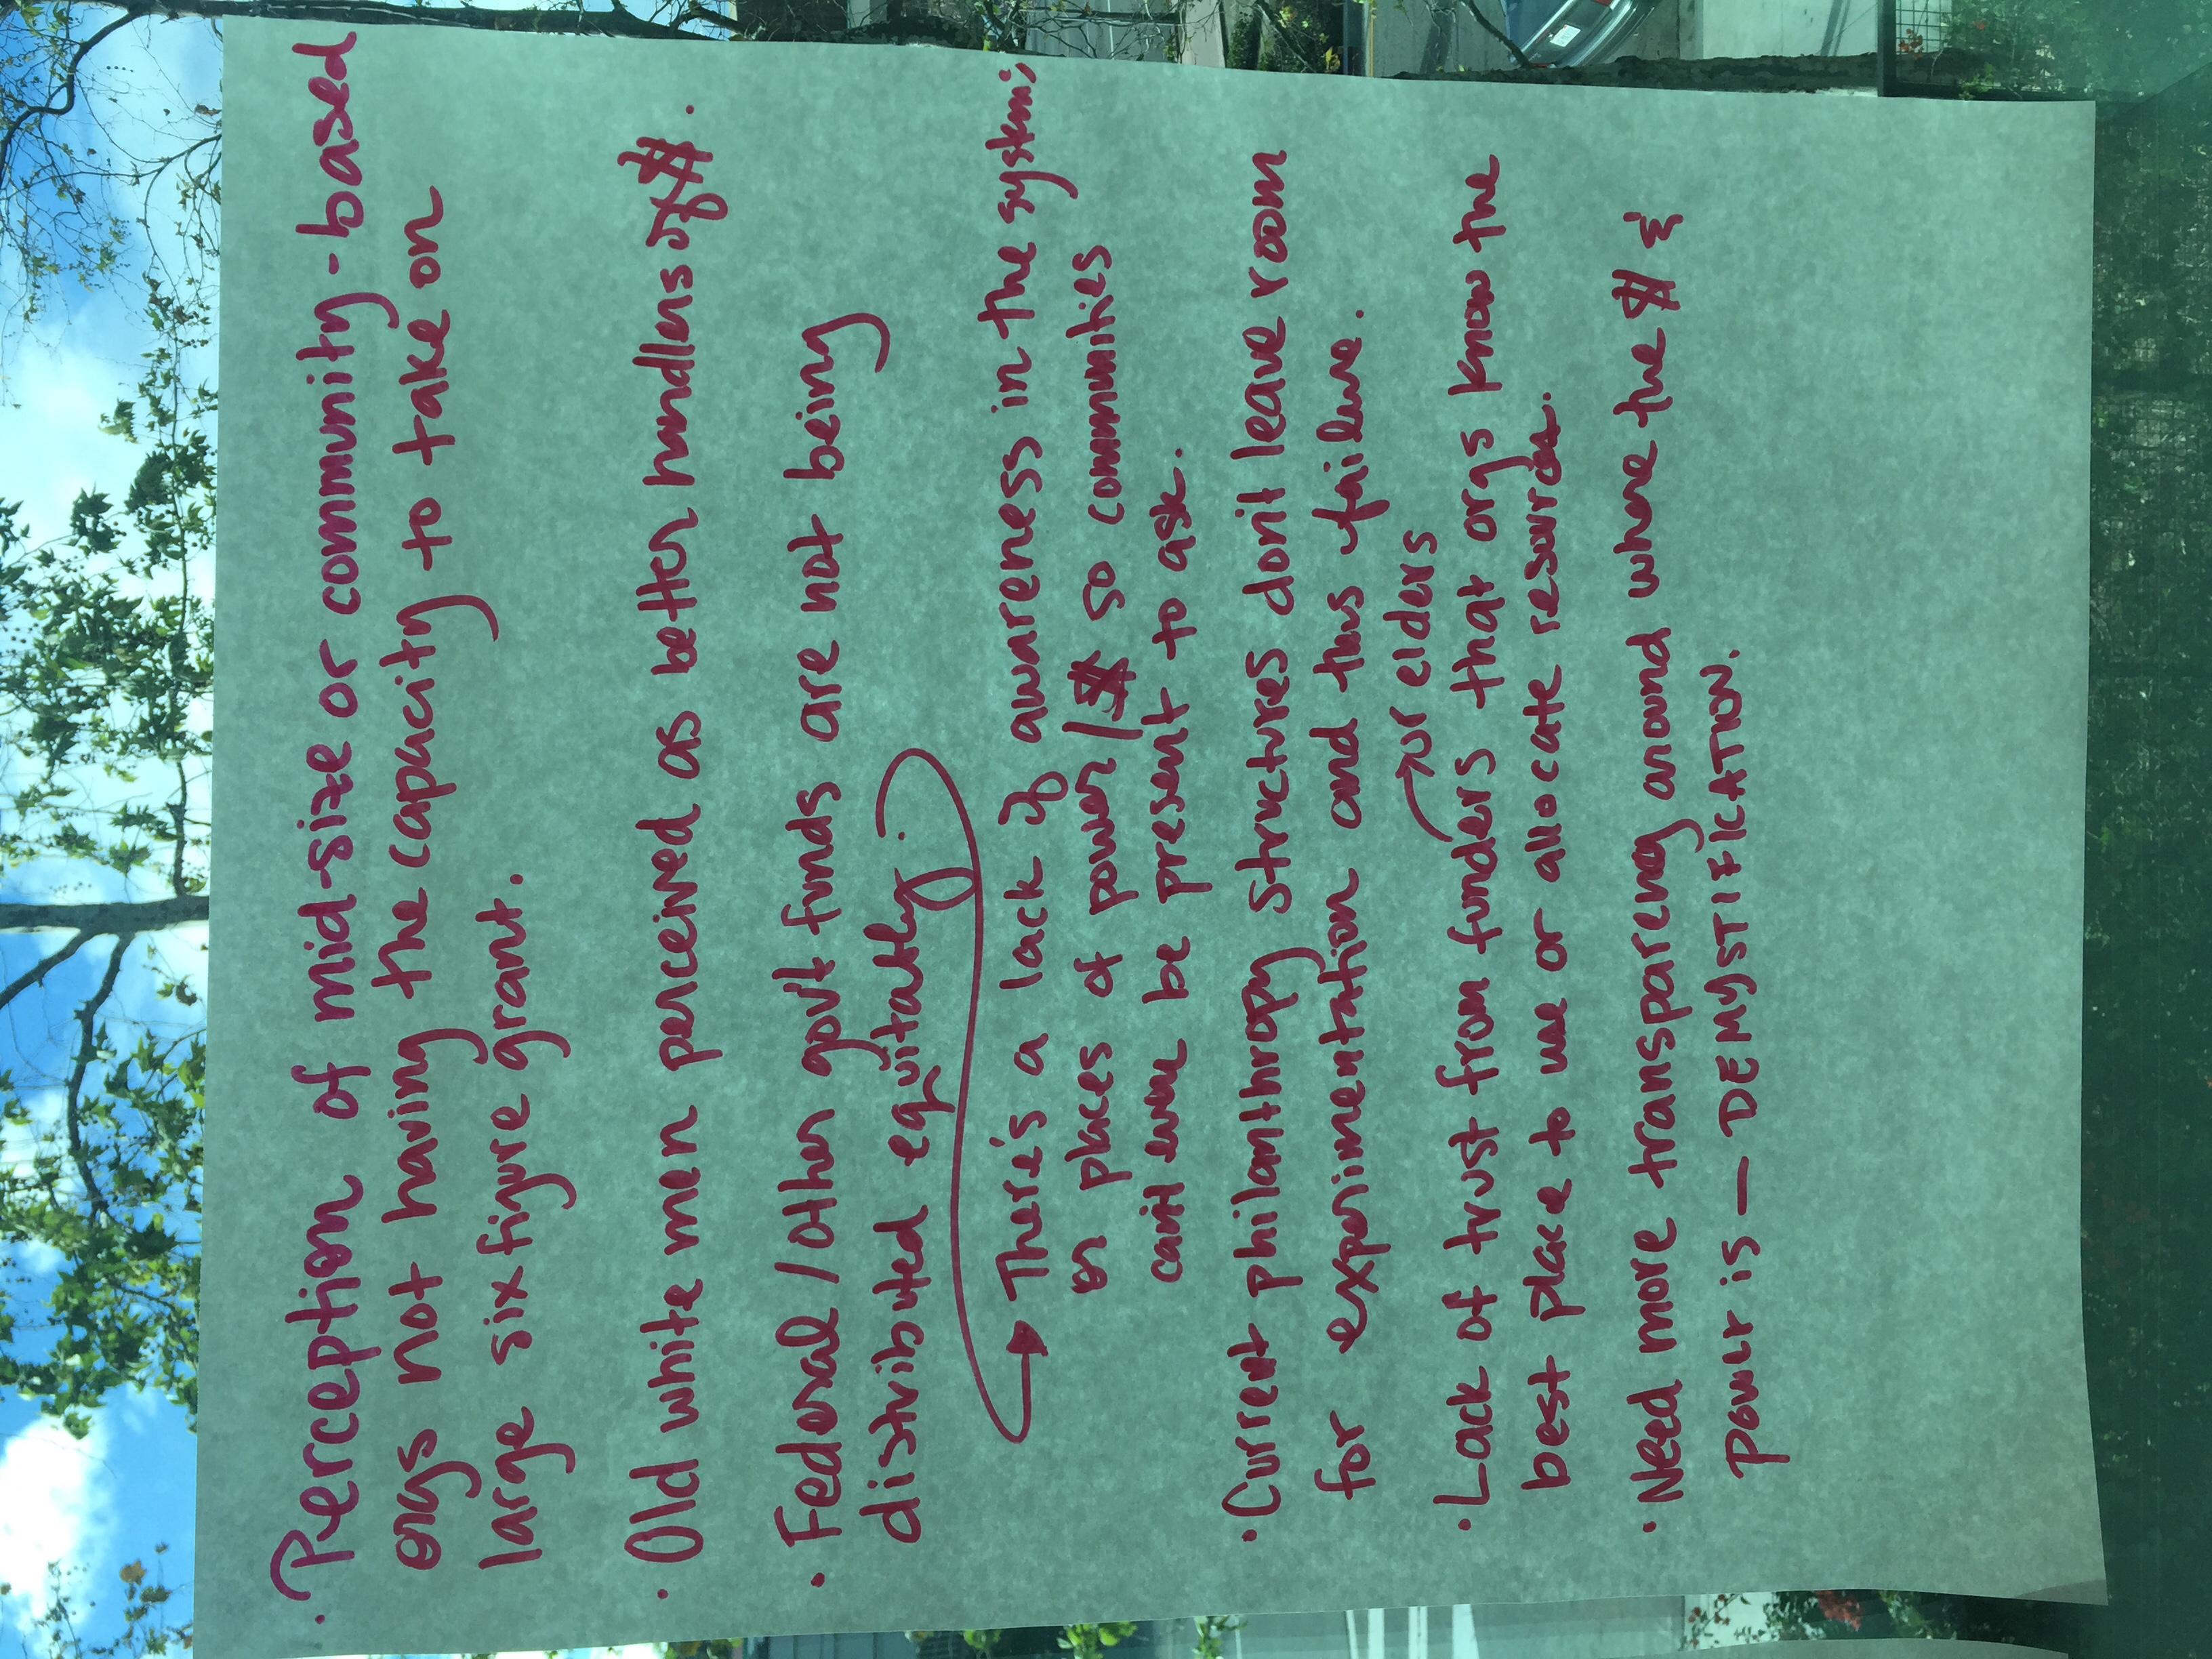 · Perception of mid-size or community-based
orgs not having the capacity to take on
large six figure grant.
· Old white men perceived as better handlers of $.
· Federal/other govt funds are not being
distributed equitably.
→ There's a lack of awareness in the system;
or places of power/$ so communities
can't even be present to ask.
· Current philanthropy structures don't leave room
for experimentation and thus failure.
→ or elders
· Lack of trust from funders that orgs know the
best place to use or allocate resources.
· Need more transparency around where the $ &
power is — DEMYSTIFICATION.